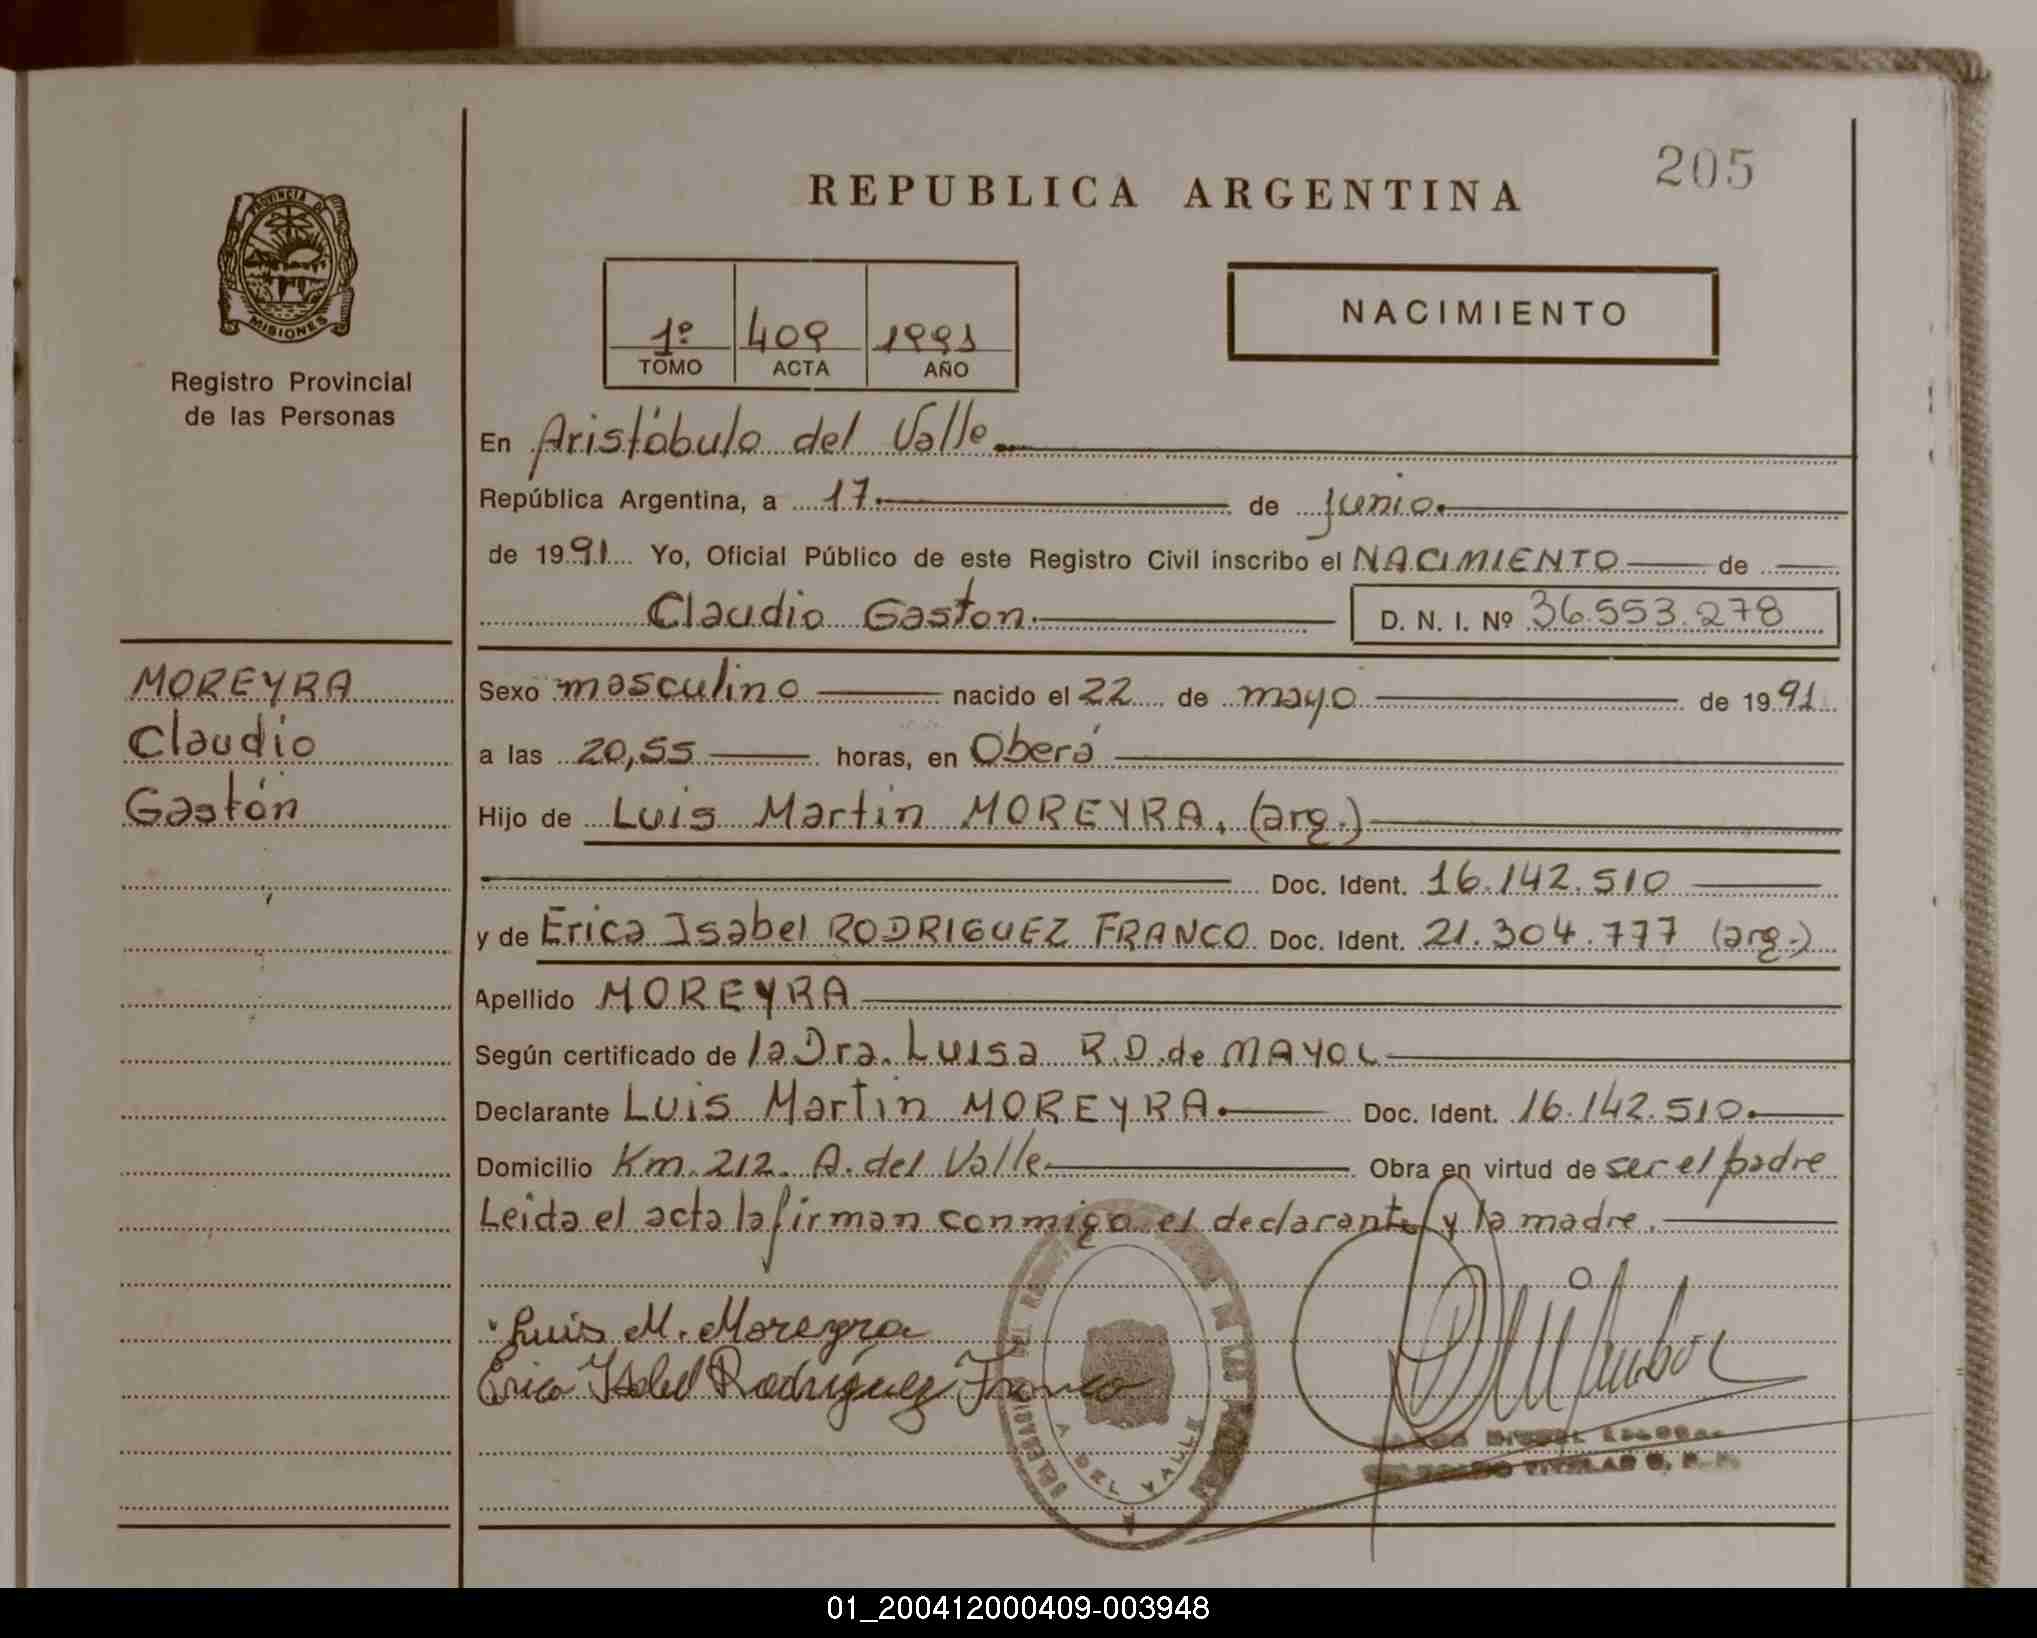 205
REPUBLICA ARGENTINA
PROVINCIA DE
MISIONES
Registro Provincial
de las Personas
1º 409 1991
TOMO ACTA AÑO
NACIMIENTO
En Aristóbulo del Valle
República Argentina, a 17 de junio
de 1991 Yo, Oficial Público de este Registro Civil inscribo el NACIMIENTO de
Claudio Gaston D. N. I. Nº 36.553.278
MOREYRA
Claudio
Gastón
Sexo masculino nacido el 22 de mayo de 1991
a las 20,55 horas, en Oberá
Hijo de Luis Martin MOREYRA, (arg.)
Doc. Ident. 16.142.510
y de Erica Isabel RODRIGUEZ FRANCO Doc. Ident. 21.304.777 (arg.)
Apellido MOREYRA
Según certificado de la Dra. Luisa R.D. de MAYOL
Declarante Luis Martin MOREYRA. Doc. Ident. 16.142.510.
Domicilio Km. 212. A. del Valle Obra en virtud de ser el padre
Leida el acta la firman conmigo el declarante y la madre.
Luis M. Moreyra
Erica Isabel Rodríguez Franco
A. DEL VALLE
TITULAR
01_200412000409-003948